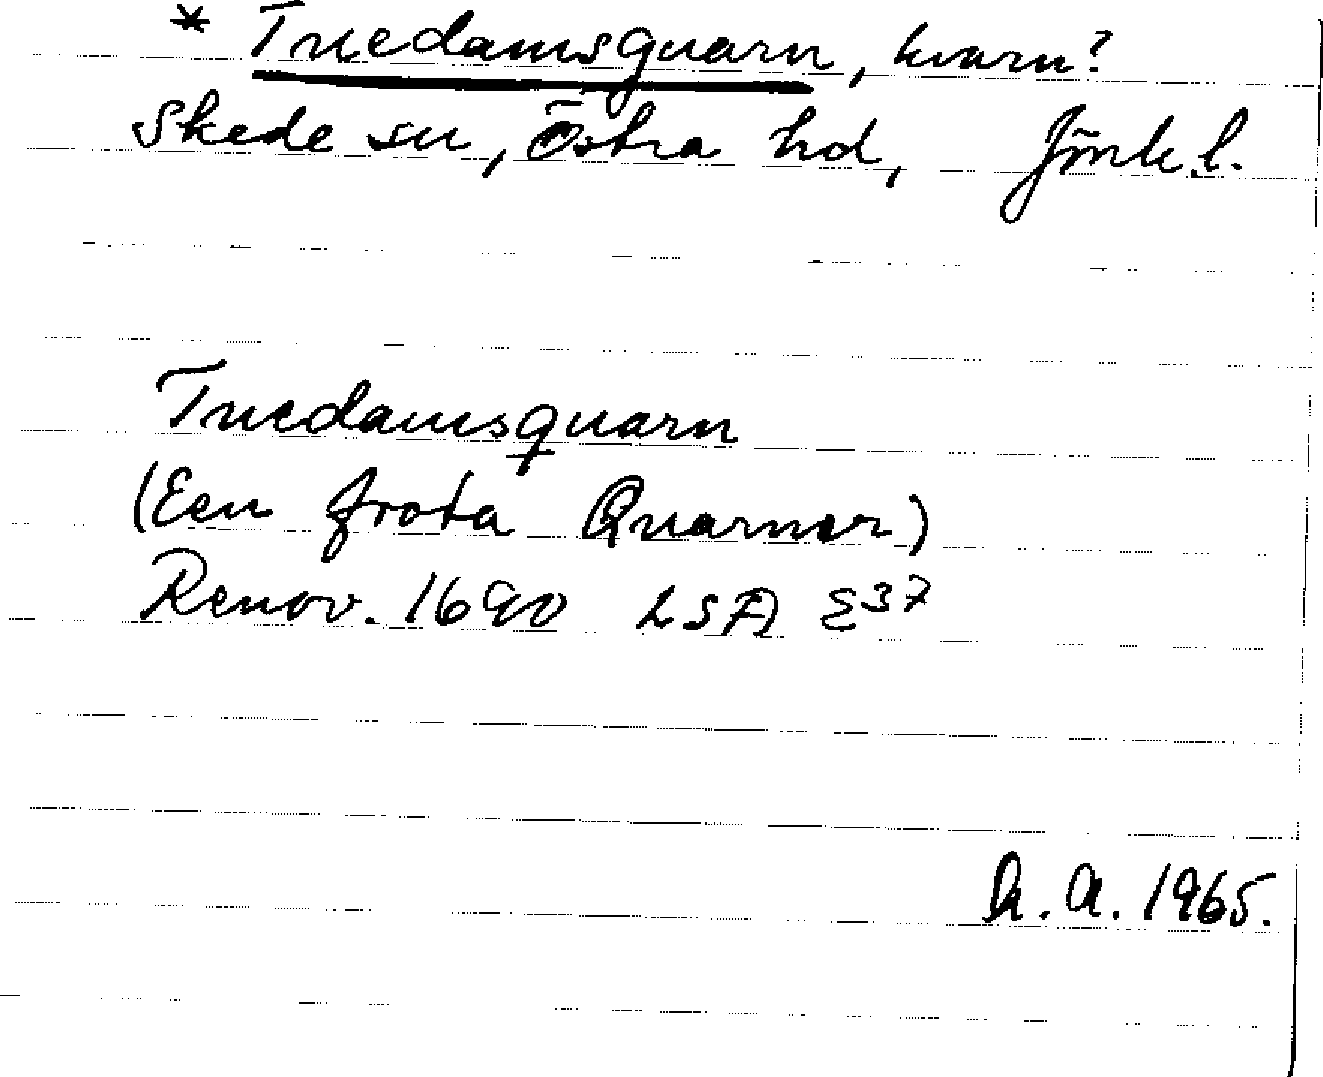 * Truedamsquarn, kvarn?
Skede sn, Östra hd, Jönk.l.
Truedamsquarn
(Een frota Quarner)
Renov. 1690 LSA E37
K.A. 1965.